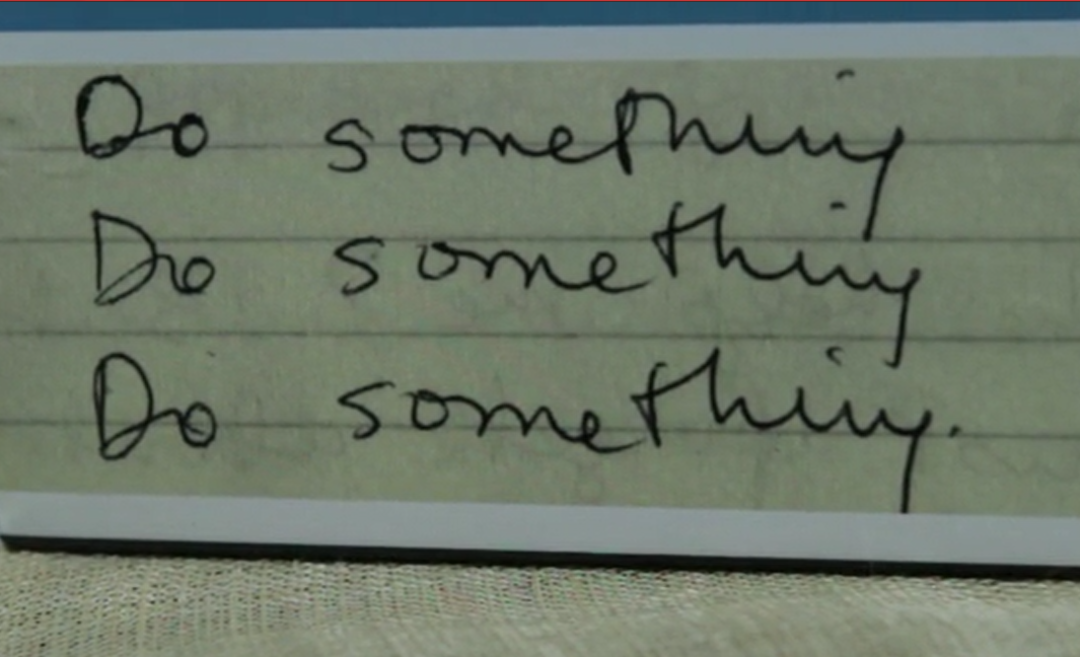 Do something
Do something
Do something.